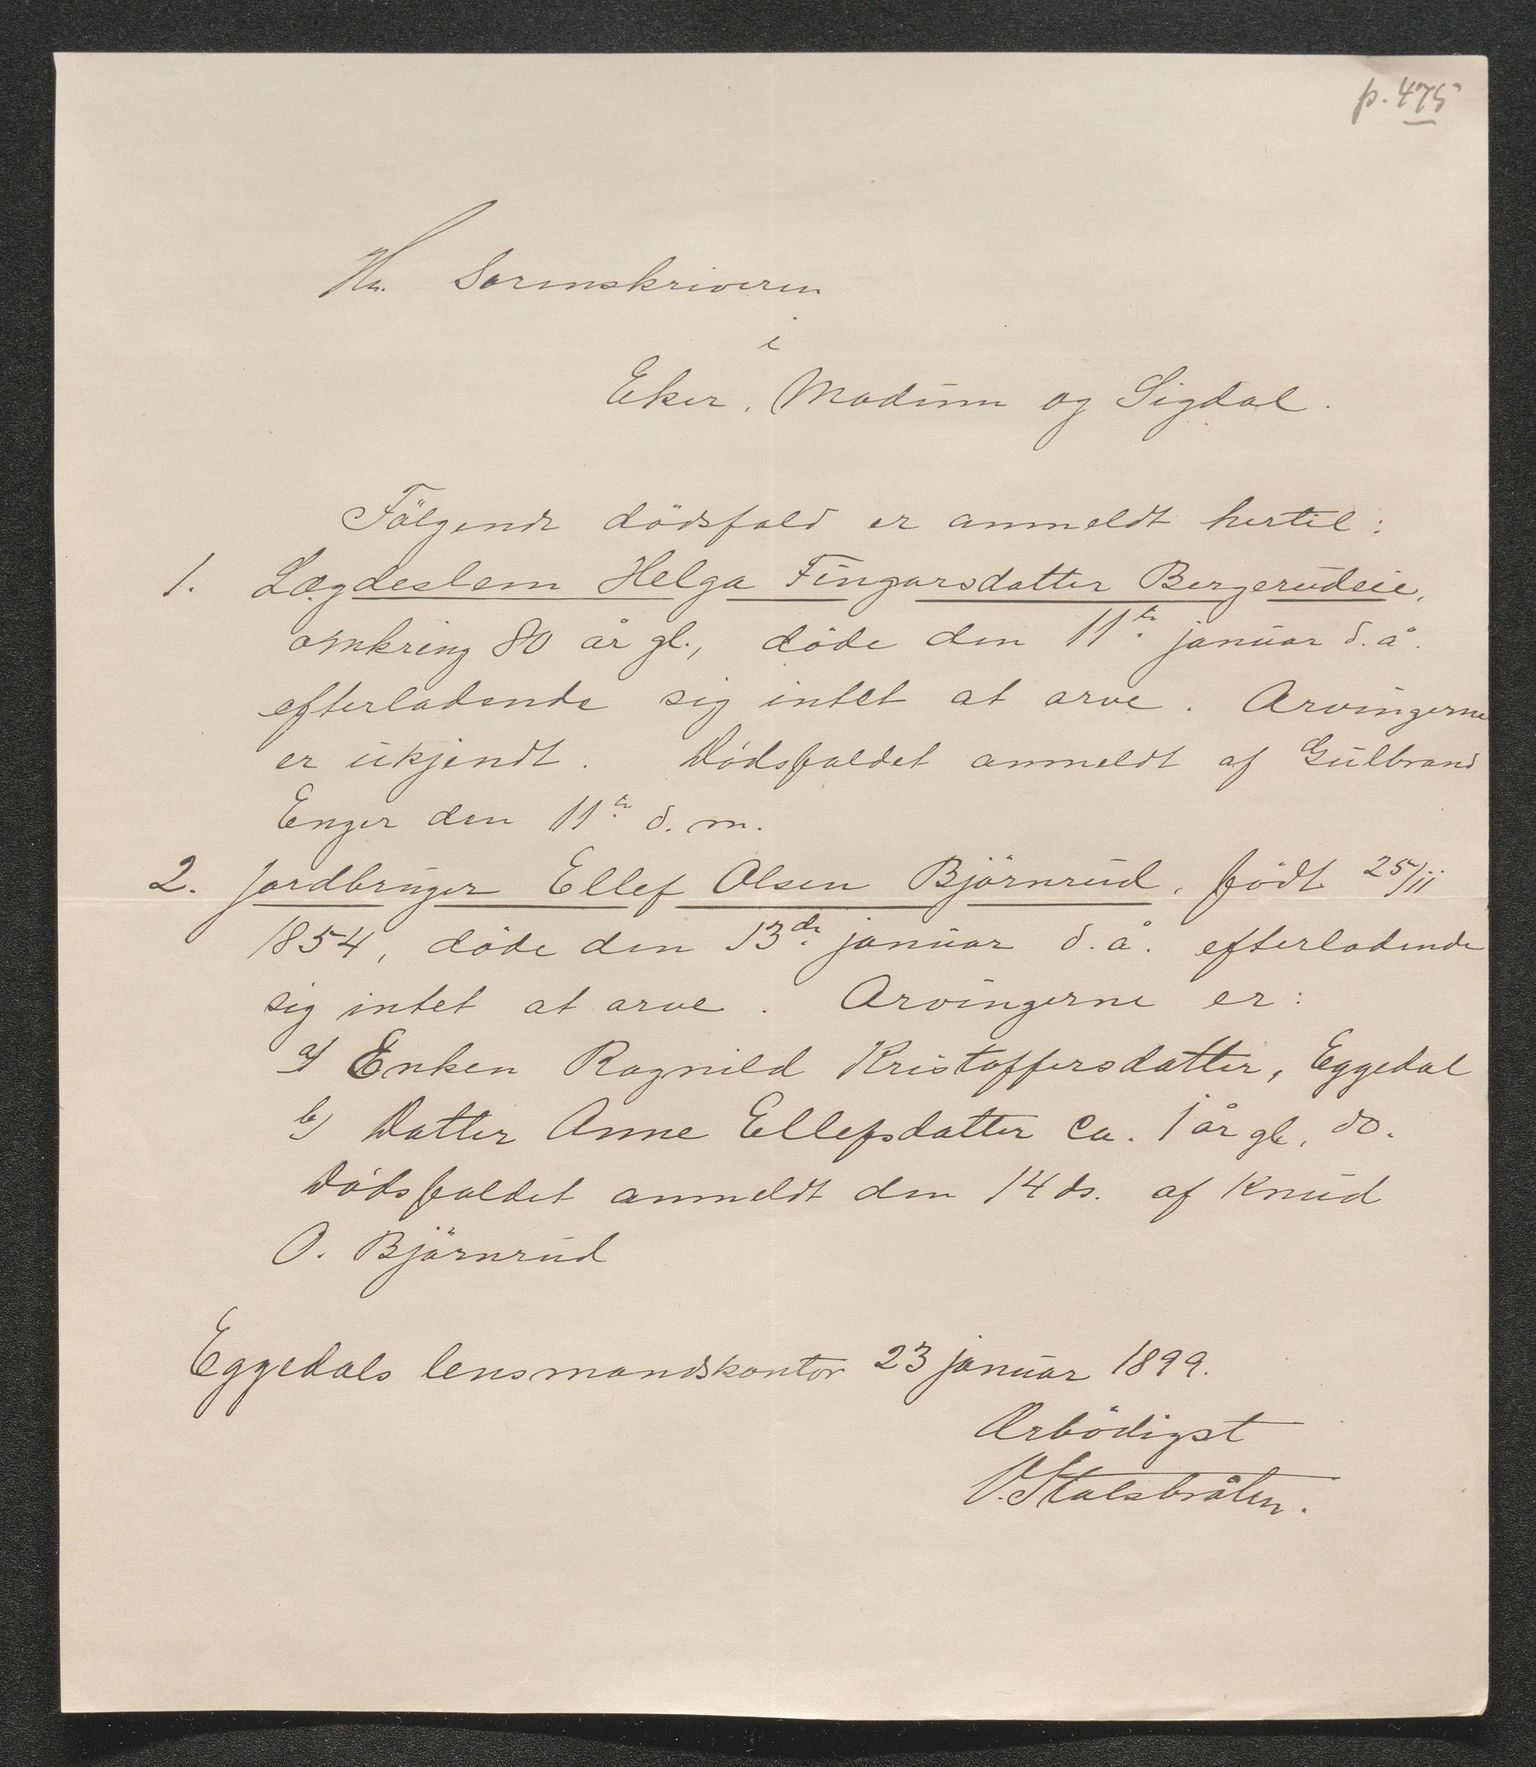 p. 475
Hr. Sorenskriveren
i
Eker, Modum og Sigdal.
Fölgende dödsfald er anmeldt hertil:
1. Lægdeslem Helga Fingarsdatter Bergerudeie,
omkring 80 år gl., döde den 11te januar d. å.
efterladende sig intet at arve. Arvingerne
er ukjendt. Dödsfaldet anmeldt af Gulbrand
Enger den 11te d. m.
2. Jordbruger Ellef Olsen Björnrud, födt 25/11
1854, döde den 13de januar d. å. efterladende
sig intet at arve. Arvingerne er:
a) Enken Ragnild Kristoffersdatter, Eggedal
b) Datter Anne Ellefsdatter ca. 1 år gl, do.
Dödsfaldet anmeldt den 14 ds. af Knud
O. Björnrud
Eggedals lensmandskontor 23 januar 1899.
Ærbödigst
V. Stalsbråten.